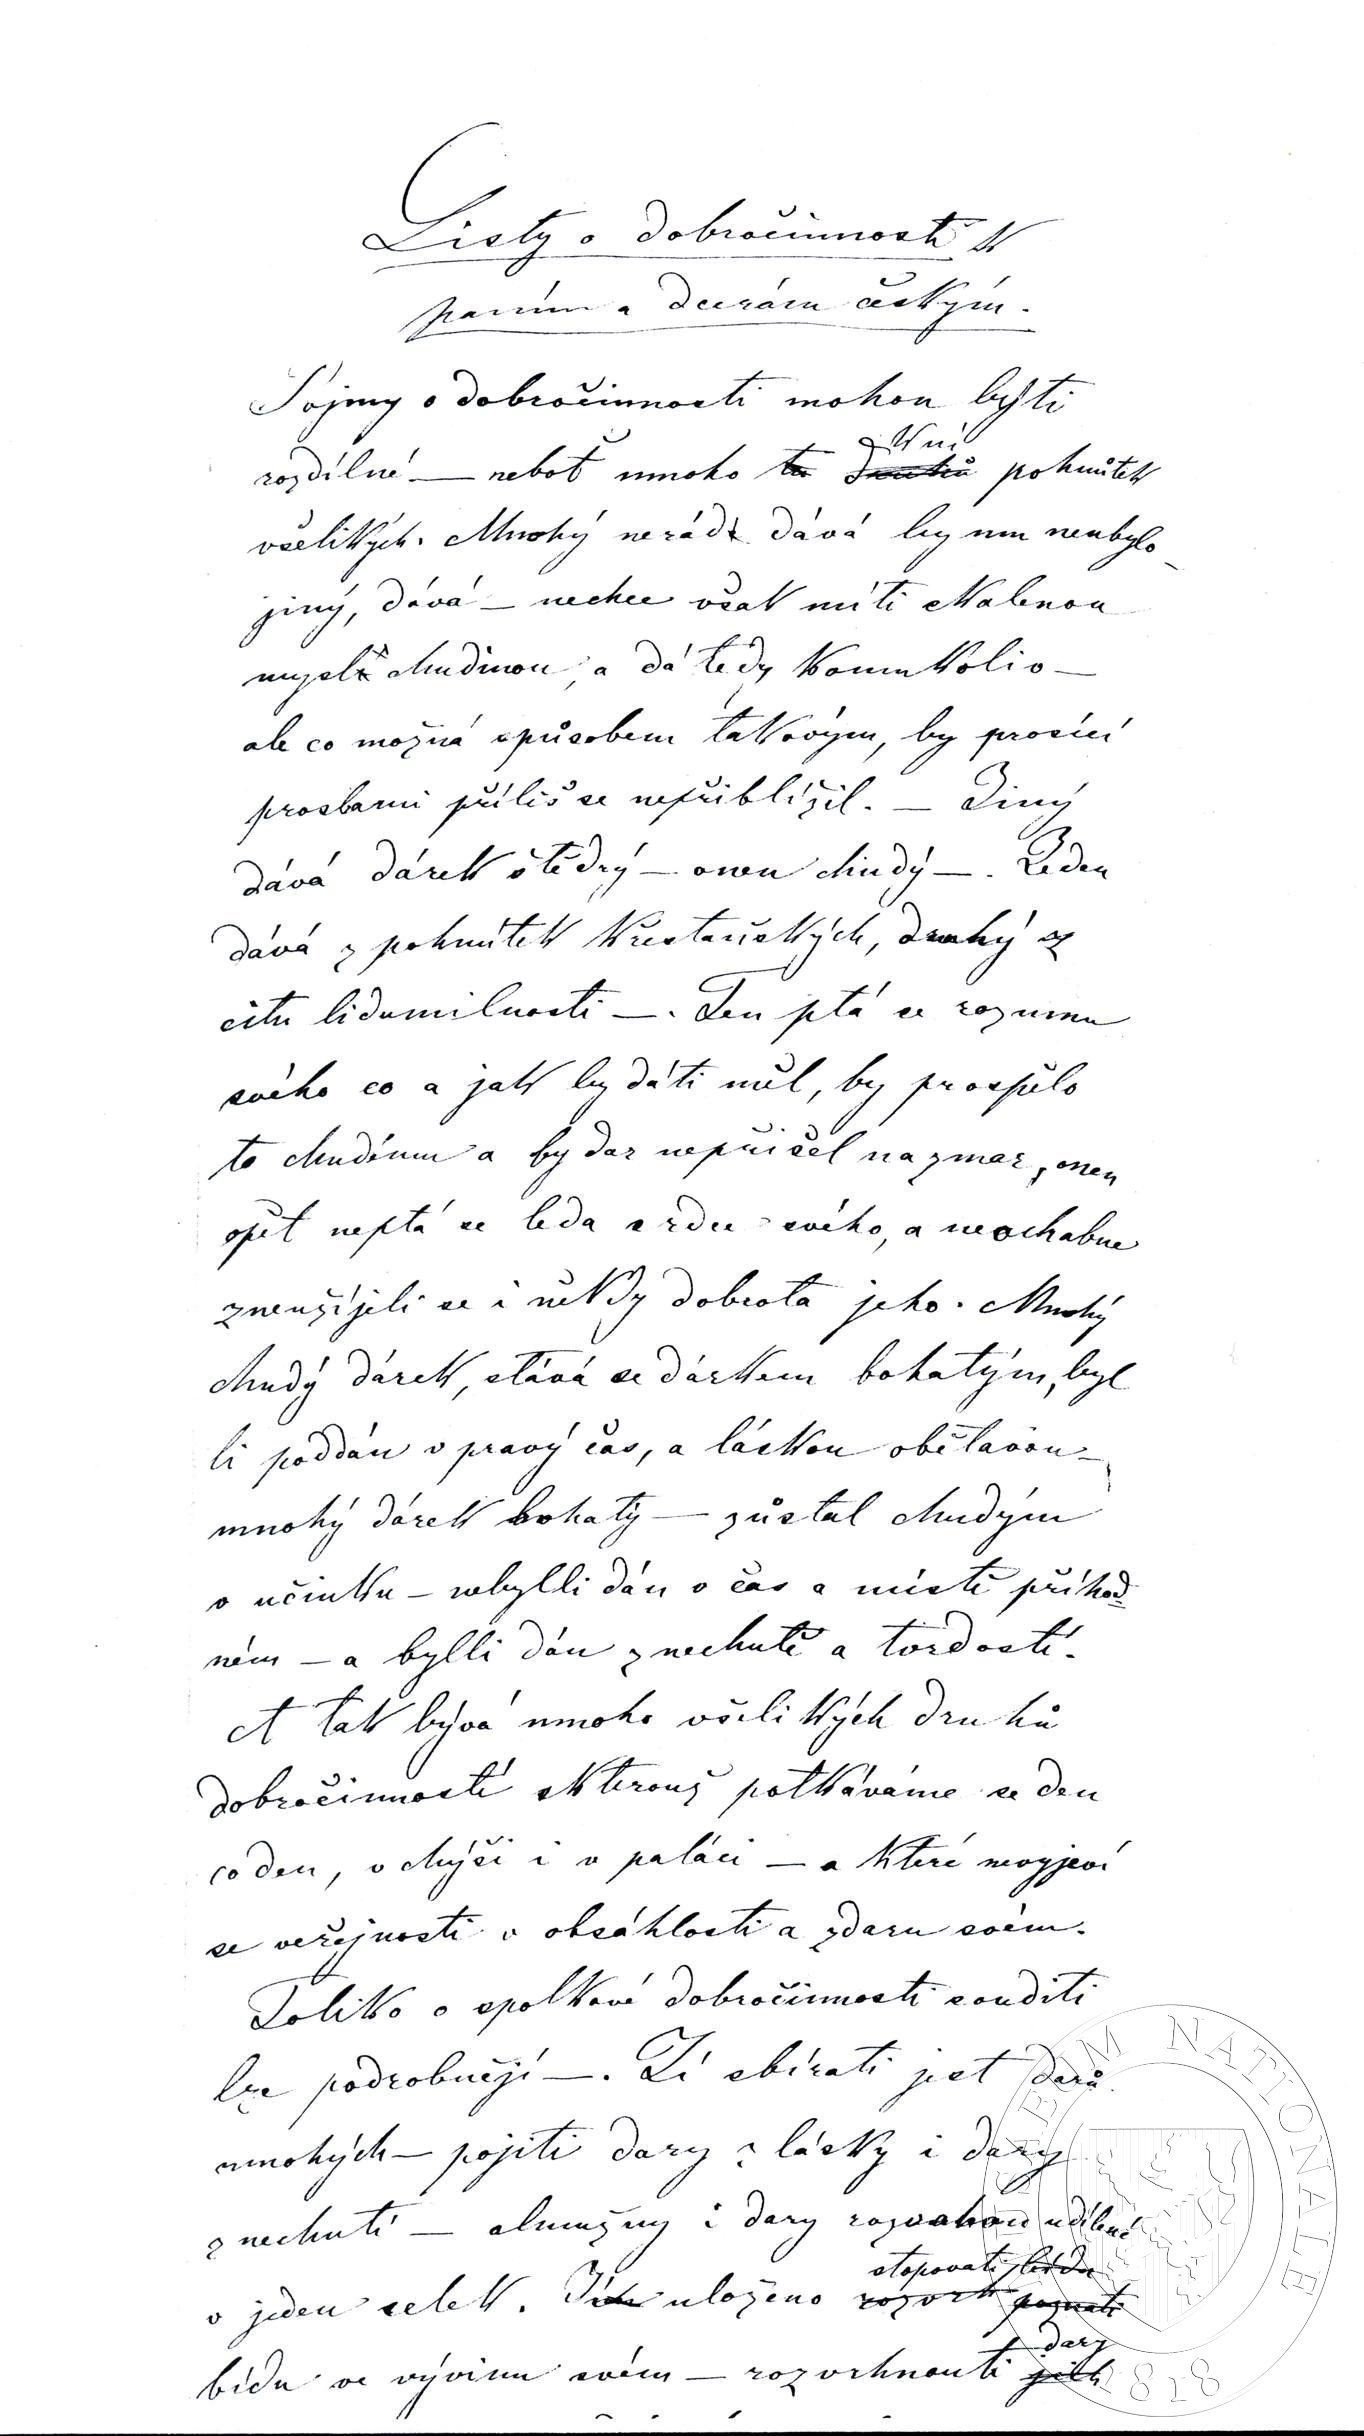 Listy o dobročinnosti k
paním a dcerám českým.
Pojmy o dobročinnosti mohou býti
rozdílné — neboť mnoho
druhů pohnůtek
všelikých. Mnohý nerád dává by mu neubylo
jiný, dává — nechce však míti
mysl chudinou, a dá tedy komukoliv —
ale co možná spůsobem takovým, by prosící
prosbami příliš se nepřiblížil. — Jiný
dává dárek štědrý — onen chudý —. Jeden
dává z pohnůtek křesťanských, druhý z
citu lidumilnosti —. Ten ptá se rozumu
svého co a jak by dáti měl, by prospělo
to chudému a by dar nepřišel na zmar, onen
opět neptá se leda srdce svého, a neochabne
zneužijeli se i někdy dobrota jeho. Mnohý
chudý dárek, stává se dárkem bohatým, byl
li poddán v pravý čas, a láskou obětavou —
mnohý dárek bohatý — zůstal chudým
v učinku — nebylli dán v čas a místě příhod
ném — a bylli dán z nechutě a tvrdostí.
A tak bývá mnoho všelikých druhů
dobročinnosti s kterouž potkáváme se den
co den, v chýši i v paláci — a které nevyjeví
se veřejnosti v obsáhlosti a zdaru svém.
Toliko o spolkové dobročinnosti souditi
lze podrobněji —. Tí sbírati jest darů
mnohých — pojiti dary z lásky i dary
z nechuti — almužny i dary rozvahou udílené
v jeden celek. Jí uloženo
stopovati
bídu ve vývinu svém — rozvrhnouti jich
dary
MUSEUM NATIONALE
1818